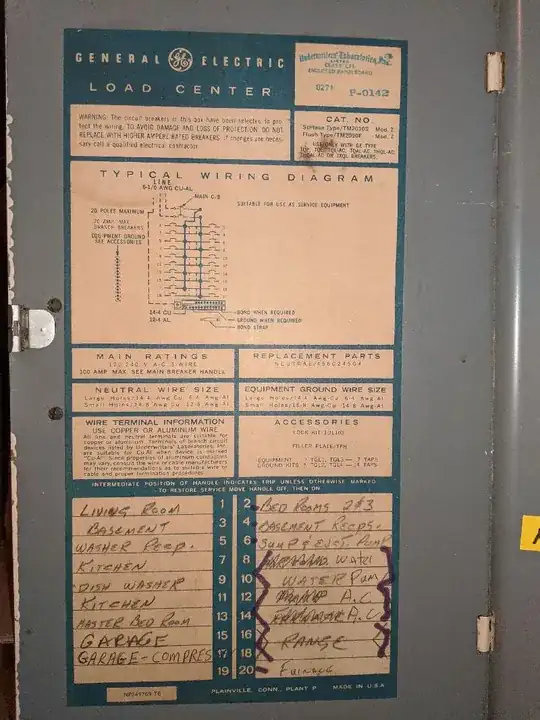 GENERAL GE ELECTRIC
LOAD CENTER
Underwriters' Laboratories, Inc.
LISTED
ENCLOSED PANELBOARD
0271 P-0142
WARNING: The circuit breakers in this box have been selected to pro-
tect the wiring. TO AVOID DAMAGE AND LOSS OF PROTECTION, DO NOT
REPLACE WITH HIGHER AMPERE RATED BREAKERS. If changes are neces-
sary call a qualified electrical contractor.
CAT. NO
Surface Type/TM2010S Mod. 2
Flush Type/TM2010F Mod. 2
USE ONLY WITH GE TYPE
TYPICAL WIRING DIAGRAM
LINE
6-1/0 AWG CU-AL
MAIN C/B
20 POLES MAXIMUM
SUITABLE FOR USE AS SERVICE EQUIPMENT
70 AMP MAX
BRANCH BREAKERS
EQUIPMENT GROUND
SEE ACCESSORIES
14-4 CU
12-4 AL
BOND WHEN REQUIRED
GROUND WHEN REQUIRED
BOND STRAP
MAIN RATINGS
120/240 V A-C 3-WIRE
100 AMP MAX SEE MAIN BREAKER HANDLE
REPLACEMENT PARTS
NEUTRAL WIRE SIZE
Large Holes/14-4 Awg-Cu 6-4 Awg-Al
Small Holes/14-8 Awg-Cu 12-8 Awg-Al
EQUIPMENT GROUND WIRE SIZE
WIRE TERMINAL INFORMATION
USE COPPER OR ALUMINUM WIRE
All line and neutral terminals are suitable for
copper or aluminum. Terminals of branch circuit
devices listed by Underwriters' Laboratories, Inc.
are suitable for Cu-Al when device is marked
"Cu-Al". Since properties of aluminum conductors
may vary, consult the wire or cable manufacturers
for their recommendations as to suitable wire or
cable and proper termination procedures.
ACCESSORIES
FILLER PLATE/
EQUIPMENT
GROUND KITS
INTERMEDIATE POSITION OF HANDLE INDICATES TRIP UNLESS OTHERWISE MARKED
TO RESTORE SERVICE MOVE HANDLE OFF, THEN ON
LIVING ROOM 1 2 BED ROOMS 2 & 3
BASEMENT 3 4 BASEMENT RECPS.
WASHER RECP. 5 6 SUMP & EJCT. PUMP
KITCHEN 7 8 WATER
DISH WASHER 9 10 WATER PUM
KITCHEN 11 12 A.C
MASTER BED ROOM 13 14 A.C
GARAGE 15 16 RANGE
GARAGE-COMPRES 17 18
19 20 FURNACE
PLAINVILLE, CONN., PLANT P MADE IN U.S.A